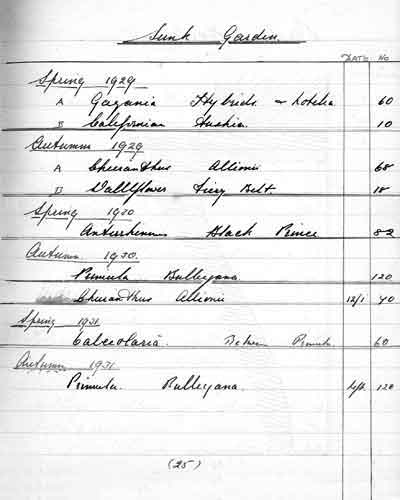 Sunk Garden.
DATE No
Spring 1929
A Gazania Hybrids & 60
B Californian 10
Autumn 1929
A Cheiranthus Allionii 68
B Wallflower Fiery 18
Spring 1930
Antirrhinum Black Prince 82
Autumn 1930.
Primula Bulleyana 120
Cheiranthus Allionii 12/1 40
Spring 1931
Calceolaria. Between Primula 60
Autumn 1931
Primula Bulleyana. 120
(25)